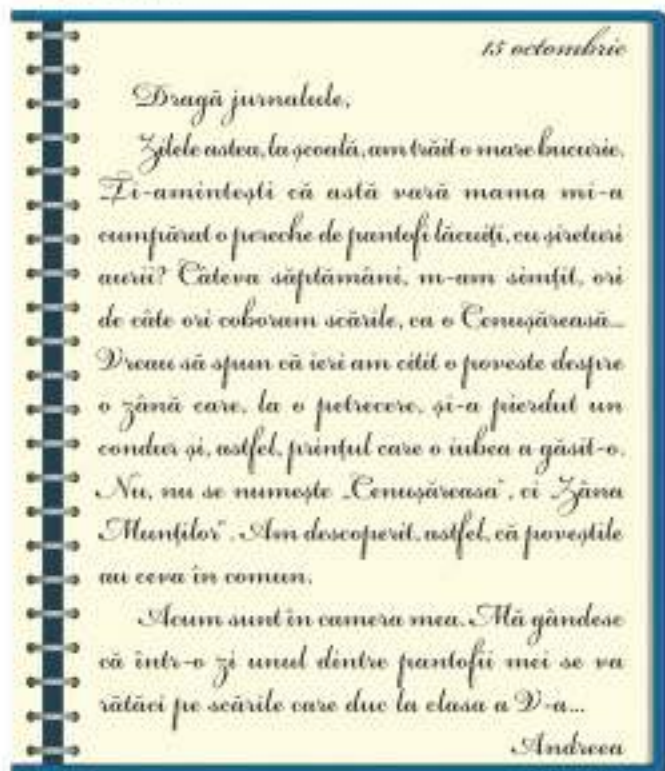 15 octombrie
Dragă jurnalule,
Zilele astea, la școală, am trăit o mare bucurie.
Ți-amintești că astă vară mama mi-a
cumpărat o pereche de pantofi lăcuiți, cu șireturi
aurii? Câteva săptămâni, m-am simțit, ori
de câte ori coboram scările, ca o Cenușăreasă...
Vreau să spun că ieri am citit o poveste despre
o zână care, la o petrecere, și-a pierdut un
condur și, astfel, prințul care o iubea a găsit-o.
Nu, nu se numește „Cenușăreasa”, ci „Zâna
Munților”. Am descoperit, astfel, că poveștile
au ceva în comun.
Acum sunt în camera mea. Mă gândesc
că într-o zi unul dintre pantofii mei se va
rătăci pe scările care duc la clasa a V-a...
Andreea